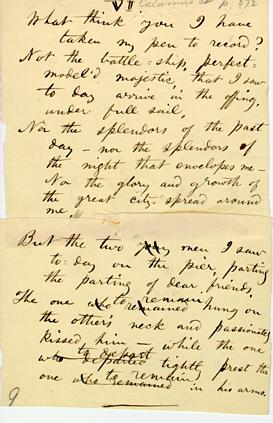 VII
Calamus st p. 372
What think you I have
taken my pen to record?
Not the battle-ship, perfect-
model'd, majestic, that I saw
to day arrive in the offing,
under full sail,
Nor the splendors of the past
day — nor the splendors of
the night that envelopes me —
Nor the glory and growth of
the great city spread around
me,
But the two men I saw
to-day on the pier, parting
the parting of dear friends,
The one to remain hung on
who remained
the other's neck and passionately
kissed him — while the one
to depart
who departed tightly prest the
one to remain in his arms.
who remained
9